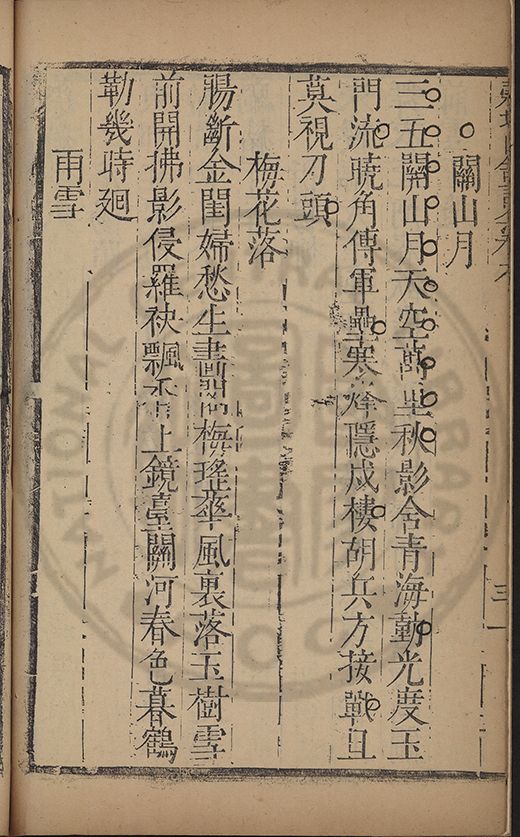 關山月
三五關山月天空萬里秋影含青海動光度玉
門流曉角傳軍壘寒烽隱戍樓胡兵方接戰且
莫視刀頭
梅花落
腸斷金閨婦愁生畫閣梅瑤華風裏落玉樹雪
前開拂影侵羅袂飄香上鏡臺關河春色暮鶴
勒幾時迴
雨雪